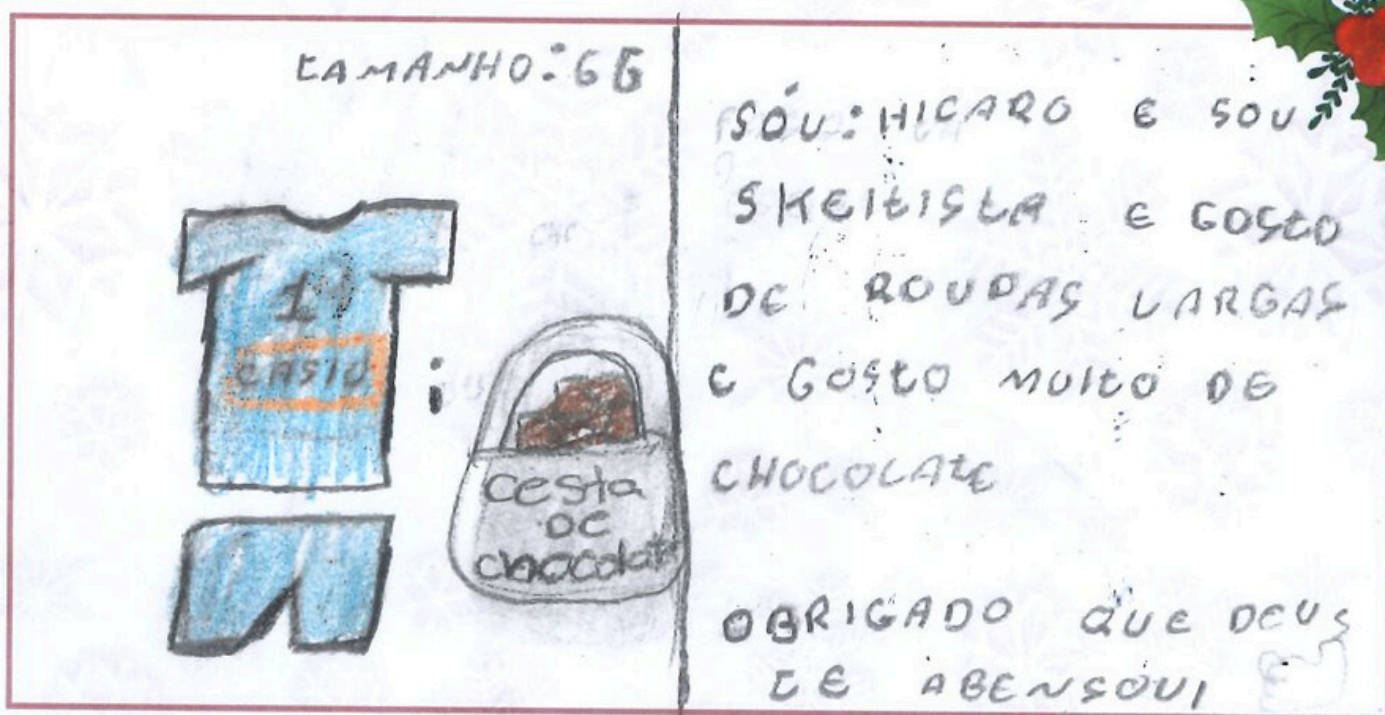 TAMANHO: GG
CASIO
cesta
DE
chocolate
SOU: HICARO E SOU
SKEITISTA E GOSTO
DE ROUPAS LARGAS
E GOSTO MUITO DE
CHOCOLATE
OBRIGADO QUE DEUS
TE ABENSOUI